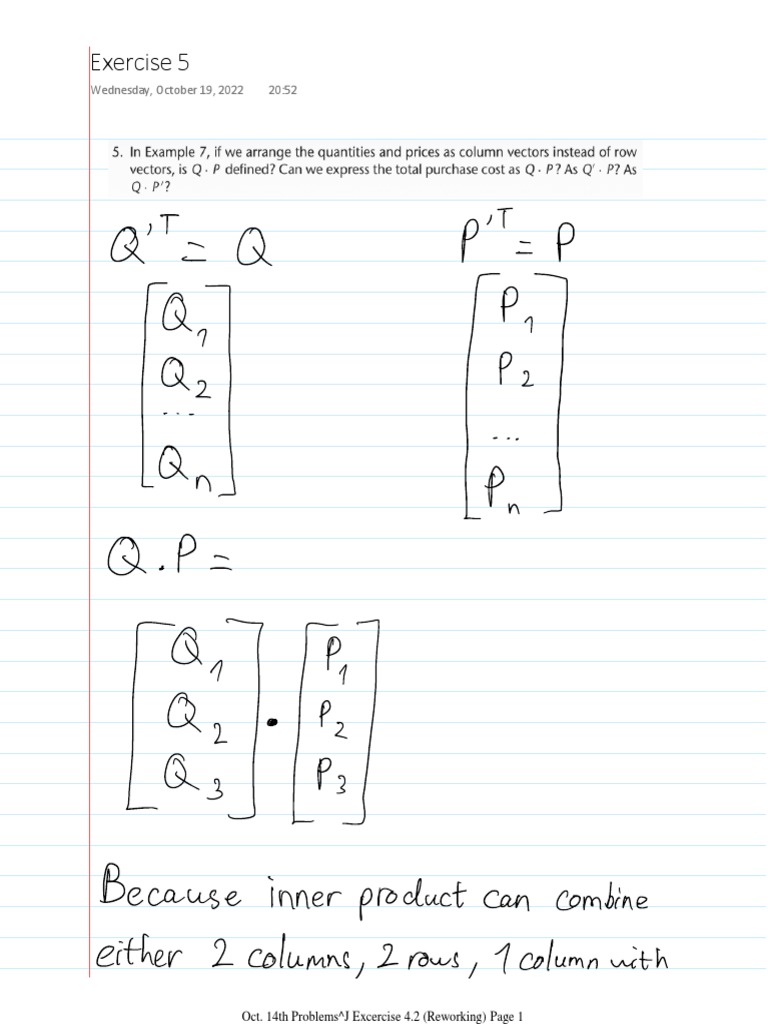 Exercise 5
Wednesday, October 19, 2022 20:52
5. In Example 7, if we arrange the quantities and prices as column vectors instead of row
vectors, is Q · P defined? Can we express the total purchase cost as Q · P? As Q' · P? As
Q · P'?
Q'^T = Q P'^T = P
[Q₁ [P₁
Q₂ P₂
... ...
Qₙ] Pₙ]
Q . P =
[Q₁ [P₁
Q₂ • P₂
Q₃] P₃]
Because inner product can combine
either 2 columns, 2 rows, 1 column with
Oct. 14th Problems^J Excercise 4.2 (Reworking) Page 1